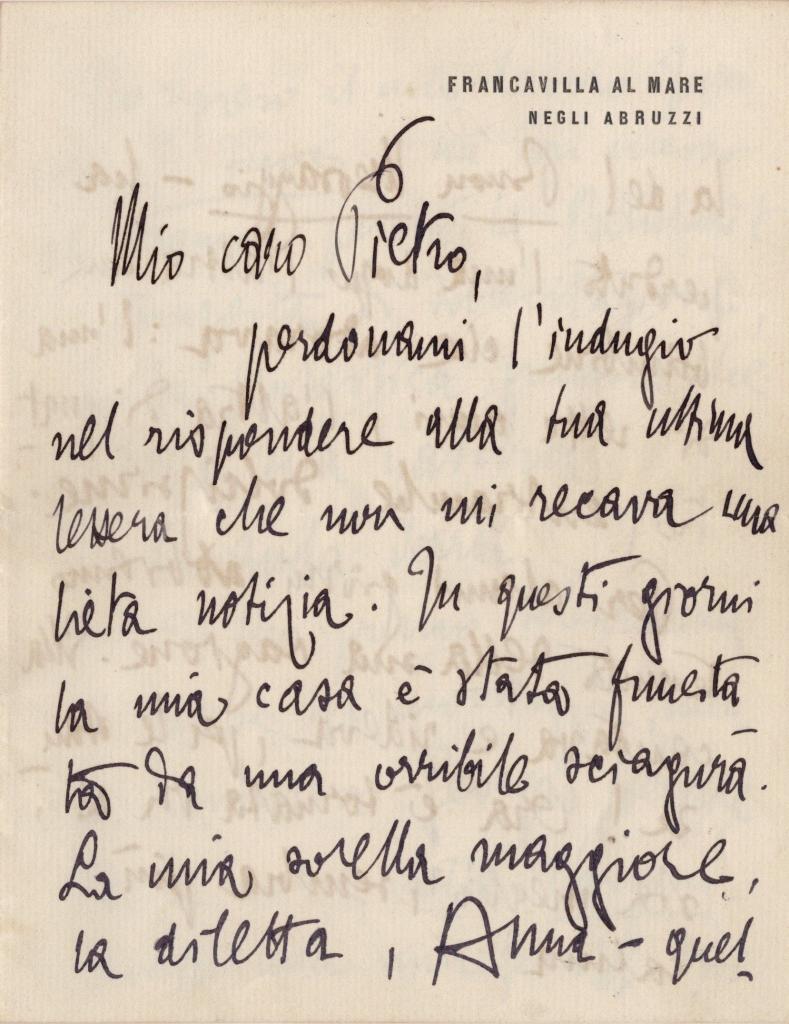 FRANCAVILLA AL MARE
NEGLI ABRUZZI
Mio caro Pietro,
perdonami l'indugio
nel rispondere alla tua ultima
lettera che non mi recava una
lieta notizia. In questi giorni
la mia casa è stata funesta
ta da una orribile sciagura.
La mia sorella maggiore,
la diletta, Anna - quel